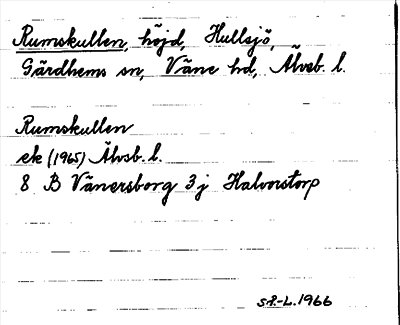 Rumskullen, höjd, Hullsjö,
Gärdhems sn, Väne hd, Älvsb. l.
Rumskullen
ek (1965) Älvsb. l.
8 B Vänersborg 3 j Halvorstorp
s.å.-L. 1966